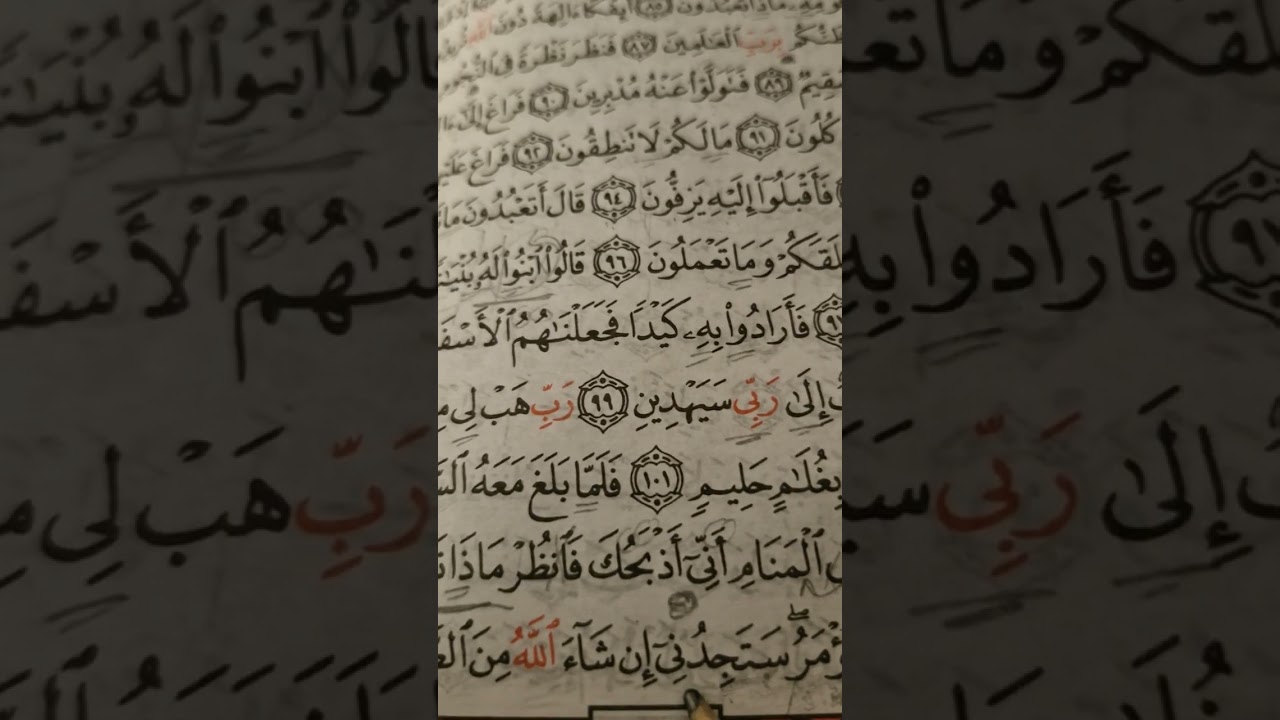 مَاذَا تَعْبُدُونَ ٨٥ أَئِفْكًا ءَالِهَةً دُونَ ٱللَّهِ
بِرَبِّ ٱلْعَٰلَمِينَ ٨٧ فَنَظَرَ نَظْرَةً فِى ٱلنُّجُومِ
سَقِيمٌ ٨٩ فَتَوَلَّوْا۟ عَنْهُ مُدْبِرِينَ ٩٠ فَرَاغَ إِلَىٰٓ
كُلُونَ ٩١ مَا لَكُمْ لَا تَنطِقُونَ ٩٢ فَرَاغَ عَلَيْ
فَأَقْبَلُوٓا۟ إِلَيْهِ يَزِفُّونَ ٩٤ قَالَ أَتَعْبُدُونَ مَا
لَقَكُمْ وَمَا تَعْمَلُونَ ٩٦ قَالُوا۟ ٱبْنُوا۟ لَهُۥ بُنْيَٰنًا
٩٧ فَأَرَادُوا۟ بِهِۦ كَيْدًا فَجَعَلْنَٰهُمُ ٱلْأَسْفَ
إِلَىٰ رَبِّى سَيَهْدِينِ ٩٩ رَبِّ هَبْ لِى مِ
بِغُلَٰمٍ حَلِيمٍ ١٠١ فَلَمَّا بَلَغَ مَعَهُ ٱلسَّ
ٱلْمَنَامِ أَنِّىٓ أَذْبَحُكَ فَٱنظُرْ مَاذَا تَ
ؤْمَرُ ۖ سَتَجِدُنِىٓ إِن شَآءَ ٱللَّهُ مِنَ ٱلصَّ